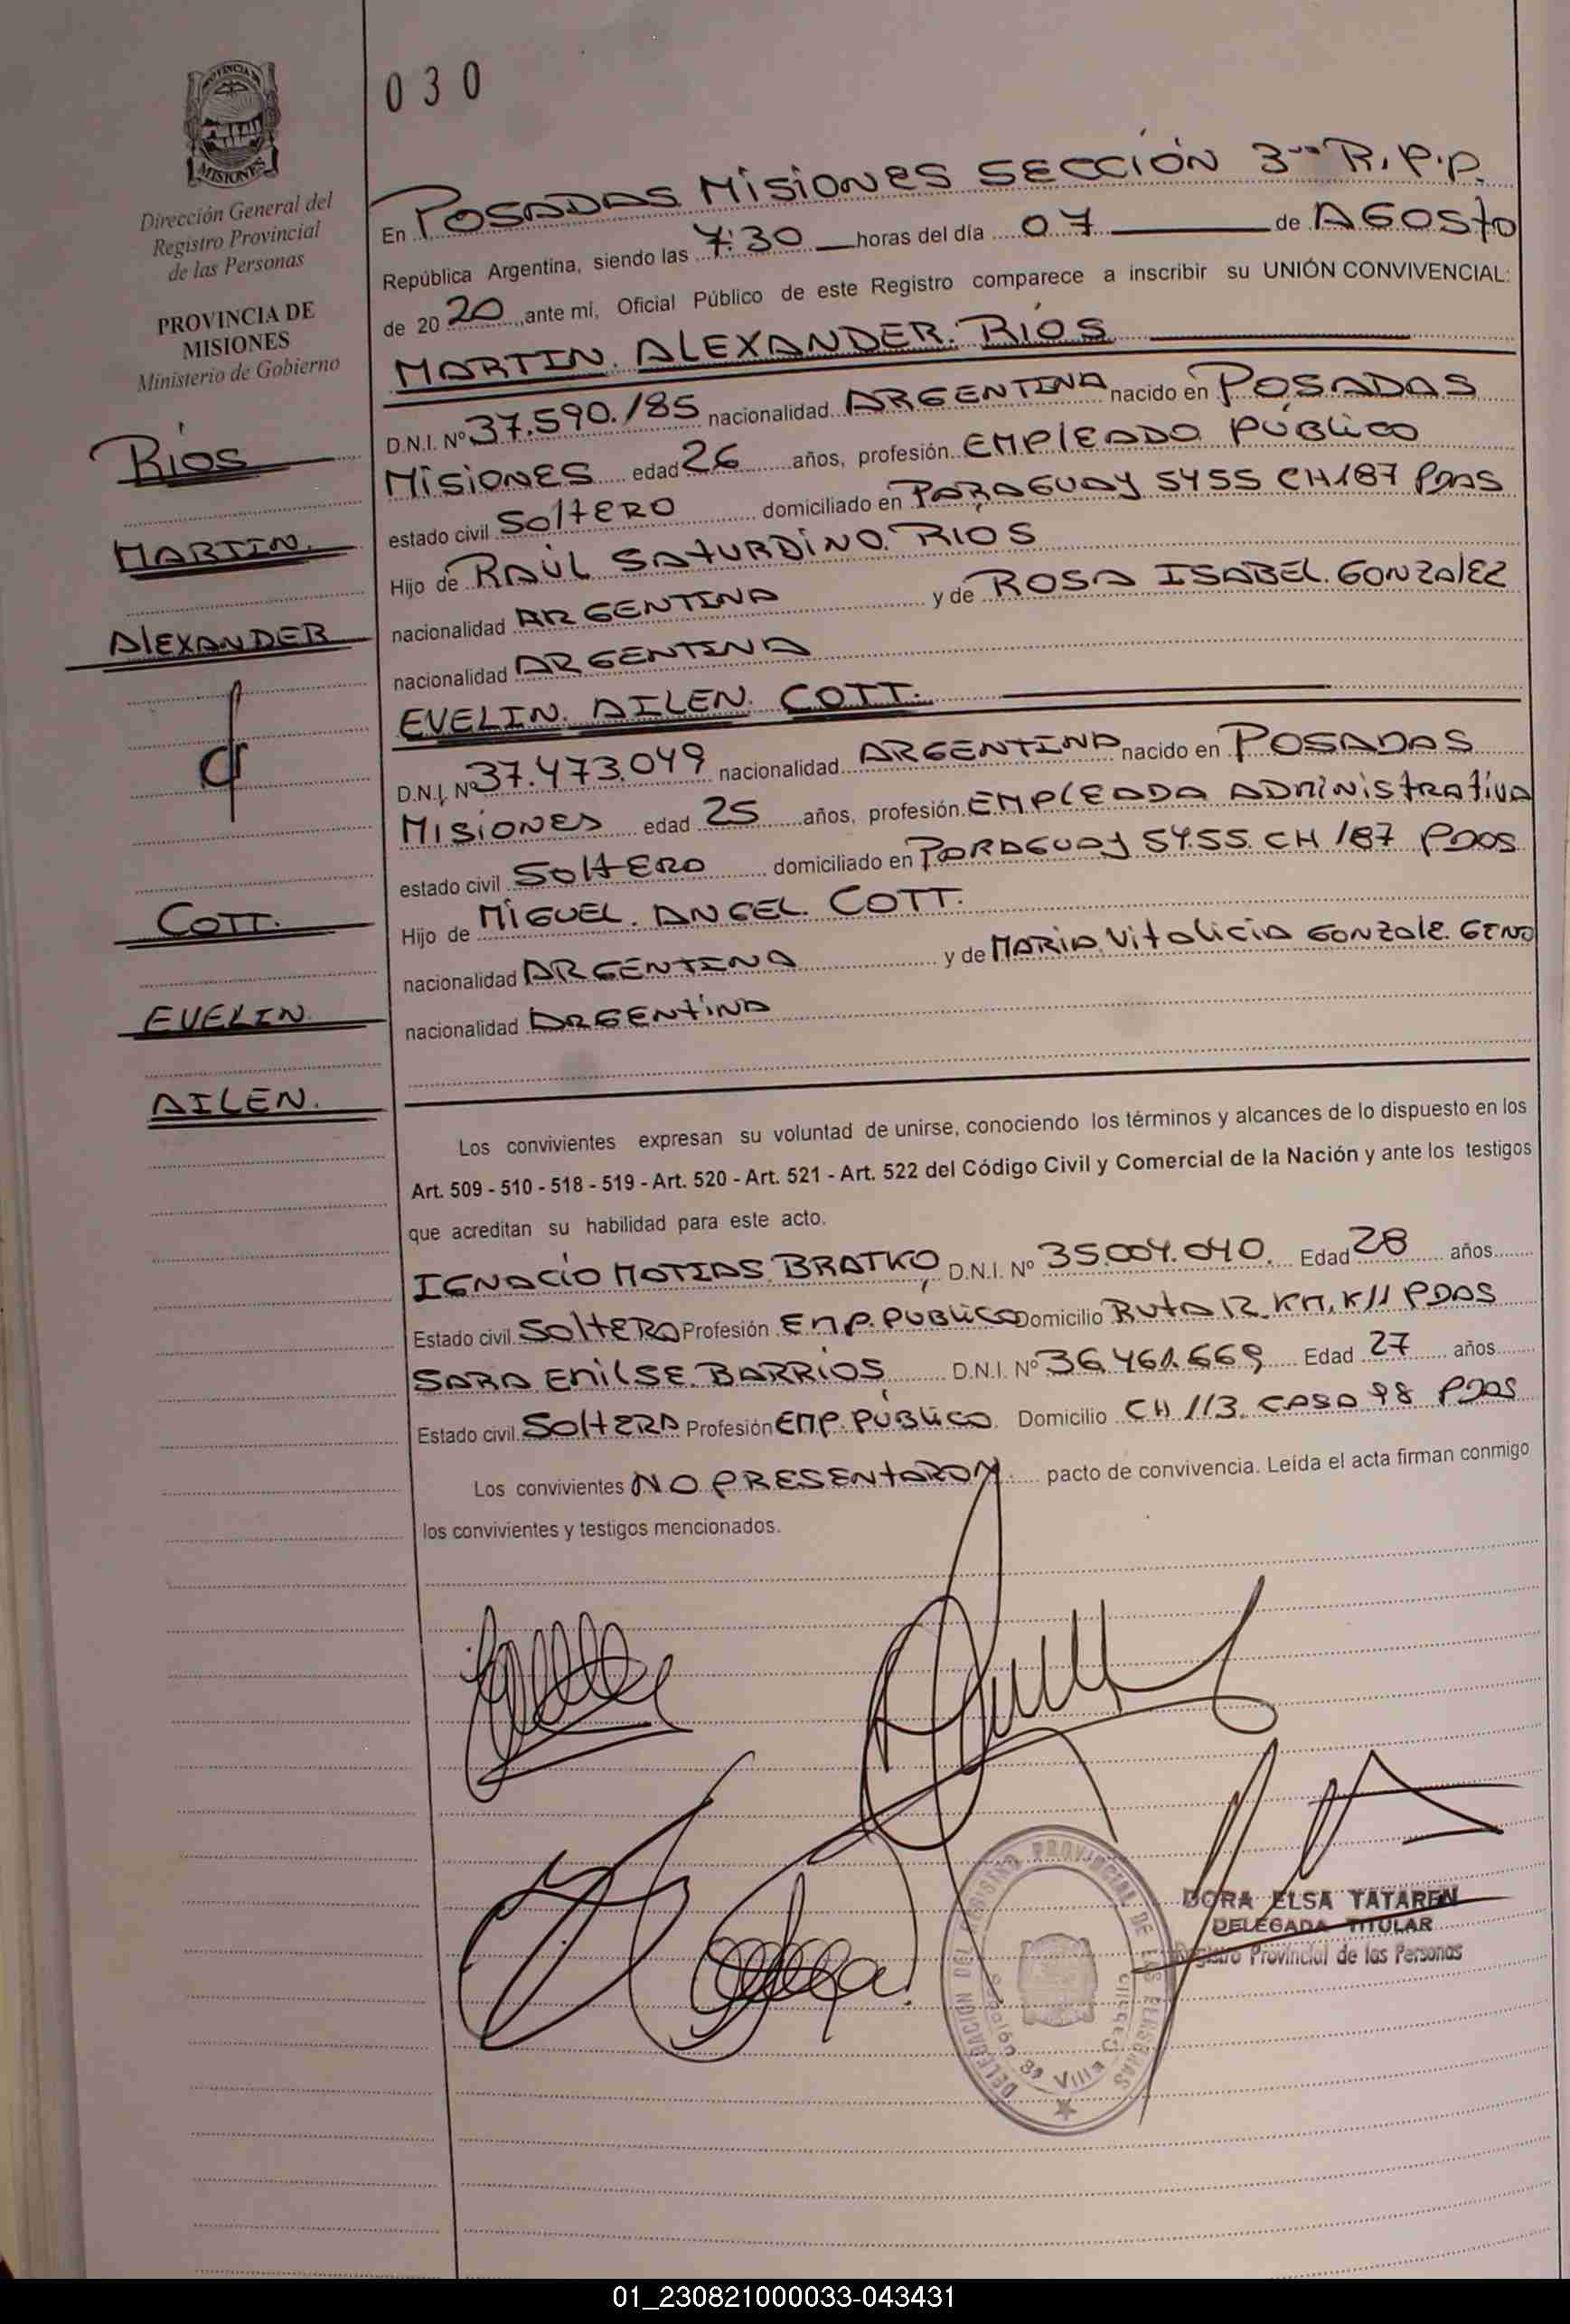 PROVINCIA DE
MISIONES
Dirección General del
Registro Provincial
de las Personas
PROVINCIA DE
MISIONES
Ministerio de Gobierno
Ríos
MARTIN.
AlEXANDER
y
COTT.
EVELIN.
AILEN.
030
En POSADAS MISIONES SECCIÓN 3ra R.P.P.
República Argentina, siendo las 7:30 horas del día 07 de AGOSTO
de 2020 ante mí, Oficial Público de este Registro comparece a inscribir su UNIÓN CONVIVENCIAL:
MARTIN. ALEXANDER. RÍOS
D.N.I. Nº 37.590.185 nacionalidad ARGENTINA nacido en POSADAS
MISIONES edad 26 años, profesión EMPlEADO PÚBLICO
estado civil SOlTERO domiciliado en PARAGUAY 5455 CH187 PDAS
Hijo de RAÚL SATURDINO RIOS
nacionalidad ARGENTINA y de ROSA ISABEL. GONZALEZ
nacionalidad ARGENTINA
EVELIN. AILEN. COTT.
D.N.I. Nº 37.473.049 nacionalidad ARGENTINA nacido en POSADAS
MISIONES edad 25 años, profesión EMPLEADA ADMINISTRATIVA
estado civil SOLTERO domiciliado en PARAGUAY 5455 CH 187 PDAS
Hijo de MIGUEL. ANGEL. COTT.
nacionalidad ARGENTINA y de MARIA VITALICIA GONZALE.
nacionalidad ARGENTINA
Los convivientes expresan su voluntad de unirse, conociendo los términos y alcances de lo dispuesto en los
Art. 509 - 510 - 518 - 519 - Art. 520 - Art. 521 - Art. 522 del Código Civil y Comercial de la Nación y ante los testigos
que acreditan su habilidad para este acto.
IGNACIO MATIAS BRATKO, D.N.I. Nº 35.004.040. Edad 28 años
Estado civil SOLTERO Profesión EMP. PÚBLICO Domicilio RUTA 12 KM. K11 PDAS
SARA EMILSE. BARRIOS D.N.I. Nº 36.461.669 Edad 27 años
Estado civil SOLTERA Profesión EMP. PÚBLICO. Domicilio CH 113. CASA 98 PDAS
Los convivientes NO PRESENTARON pacto de convivencia. Leída el acta firman conmigo
los convivientes y testigos mencionados.
DELEGACION DEL REGISTRO PROVINCIAL DE LAS PERSONAS
Sección 3ª Villa
DORA ELSA TATAREN
DELEGADA TITULAR
Registro Provincial de las Personas
01_230821000033-043431